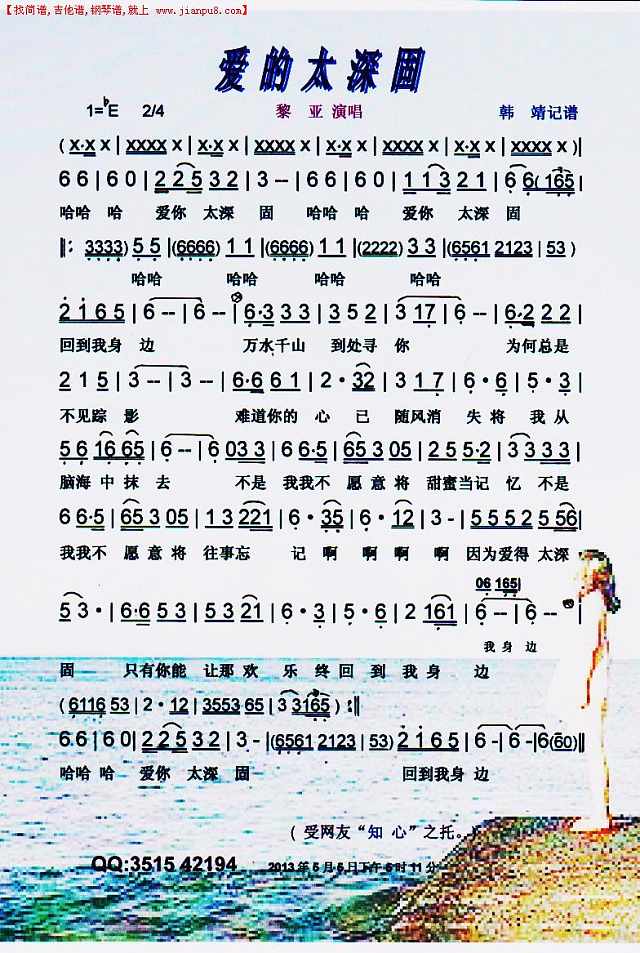 【找简谱,吉他谱,钢琴谱,就上 www.jianpu8.com】
爱的太深固
1=♭E 2/4 黎 亚 演唱 韩 靖记谱
( x·x x | xxxx x | x·x x | xxxx x | x·x x | xxxx x | x·x x | xxxx x )|
6 6 | 6 0 | 2 2 5 3 2 | 3 -- | 6 6 | 6 0 | 1 1 3 2 1 | 6 6( 165 |
哈哈 哈 爱你 太深 固 哈哈 哈 爱你 太深 固
‖: 3333) 5 5 |(6666) 1 1 |(6666) 1 1 | (2222) 3 3 |(6561 2123 | 53 )
哈哈 哈哈 哈哈 哈哈
2 1 6 5 | 6 -- | 6 -- | 6·3 3 3 | 3 5 2 | 3 17 | 6 -- | 6·2 2 2 |
回到我身 边 万水千山 到处寻 你 为何总是
2 1 5 | 3 -- | 3 -- | 6·6 6 1 | 2 · 32 | 3 1 7 | 6 · 6 | 5 · 3 |
不见踪 影 难道你的 心 已 随风消 失 将 我 从
5 6 16 65 | 6 -- | 6 -- | 0 3 3 | 6 6·5 | 65 3 05 | 2 5 5·2 | 3 3 3 3 |
脑海 中 抹 去 不是 我我不 愿 意 将 甜蜜当记 忆 不是
6 6·5 | 65 3 05 | 1 3 221 | 6 · 35 | 6 · 12 | 3 - | 5 5 5 2 5 56 |
我我不 愿 意 将 往事忘 记 啊 啊 啊 啊 因为爱得 太深
06 165|
5 3 · | 6·6 5 3 | 5 3 21 | 6 · 3 | 5 · 6 | 2 161 | 6 -- | 6 -- |
我 身 边
固 只有你能 让那 欢 乐 终 回 到 我 身 边
( 6116 53 | 2 · 12 | 3553 65 | 3 3165 ) :‖
6 6 | 6 0 | 2 2 5 3 2 | 3 - |(6561 2123 | 53) 2 1 6 5 | 6 - | 6 - | 6(60) |
哈哈 哈 爱你 太深 固 回到我身 边
( 受网友“知 心”之托。)
QQ:3515 42194 2013年5月5日下午6时11分